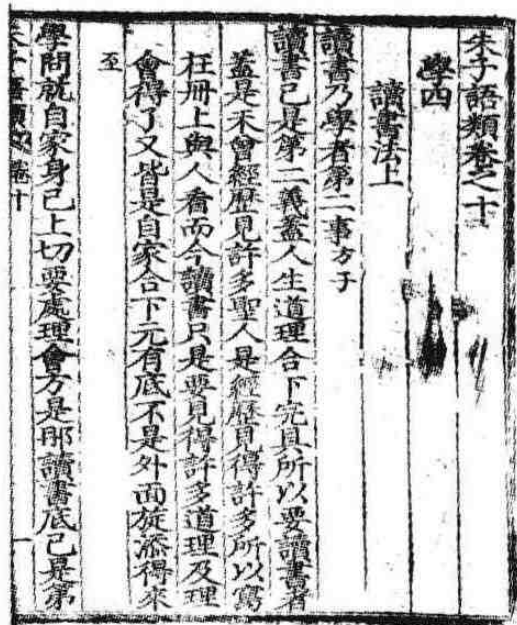 朱子語類卷之十
學四
讀書法上
讀書乃學者第二事方子
讀書已是第二義蓋人生道理合下完具所以要讀書者
蓋是未曾經歷見許多聖人是經歷見得許多所以寫
在冊上與人看而今讀書只是要見得許多道理及理
會得了又皆是自家合下元有底不是外面旋添得來
至
學問就自家身己上切要處理會方是那讀書底已是第
朱子語類 卷十 一